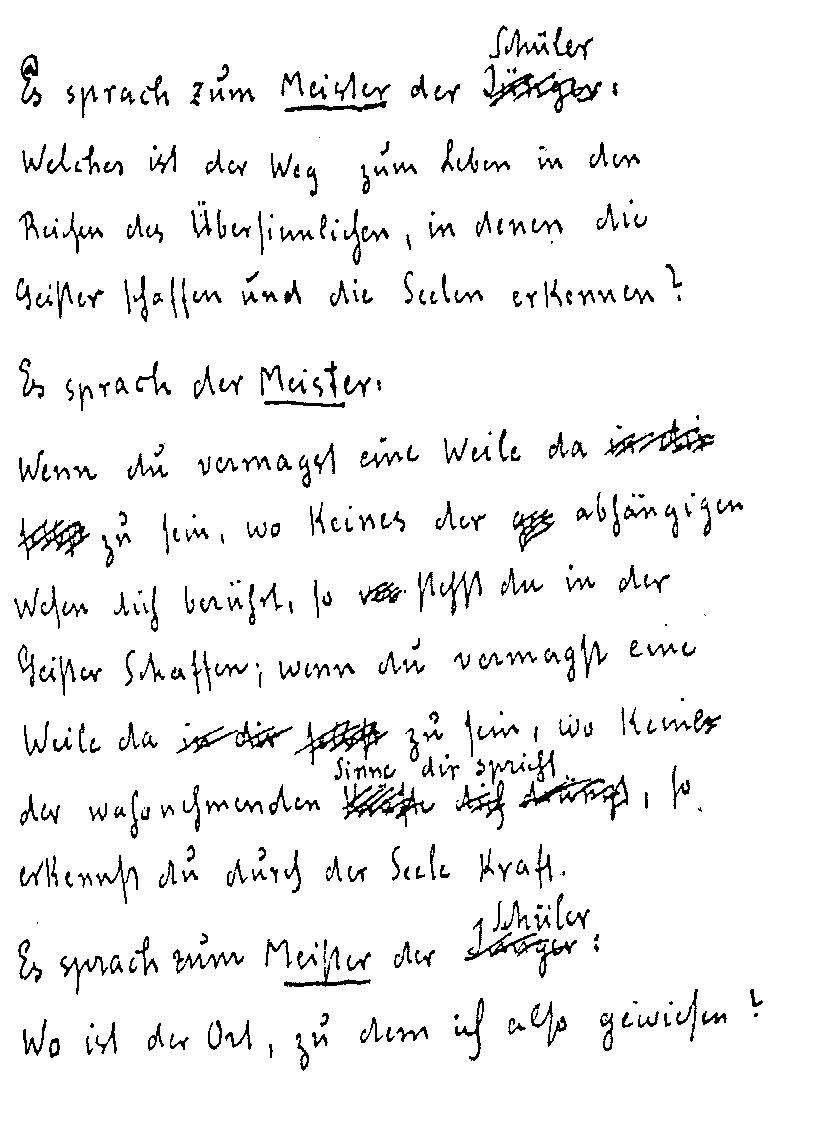 Schüler
Es sprach zum Meister der Jünger:
Welches ist der Weg zum Leben in den
Reichen des Übersinnlichen, in denen die
Geister schaffen und die Seelen erkennen?
Es sprach der Meister:
Wenn du vermagst eine Weile da in dir
selbst zu sein, wo Keines der abhängigen
Wesen dich berührt, so stehst du in der
Geister Schaffen; wenn du vermagst eine
Weile da in dir selbst zu sein, wo Keines
Sinne dir spricht
der wahrnehmenden Kräfte dich drängt, so
erkennst du durch der Seele Kraft.
Schüler
Es sprach zum Meister der Jünger:
Wo ist der Ort, zu dem ich also gewiesen?